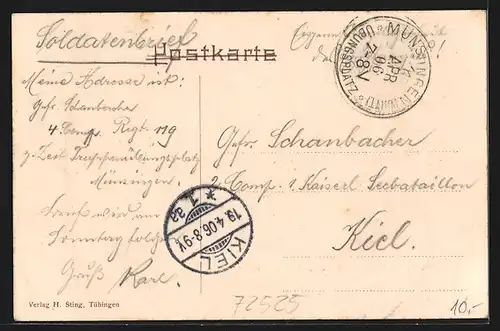 Soldatenbrief
Postkarte
Eigene
MÜNSINGEN
ÜBUNGSPLATZ
APR
06
7-8V
(DANNW)
Meine Adresse ist:
Gefr. Schanbacher
4. Comp. Regt. 119
z. Zeit Truppenübungsplatz
Münsingen.
Brief wird am
Sonntag folgen
Gruß Karl.
Gefr. Schanbacher
2. Comp. 1. Kaiserl. Seebataillon
Kiel.
KIEL
19.4.06.8-9V
* 1 aa
Verlag H. Sting, Tübingen
72525
10,-